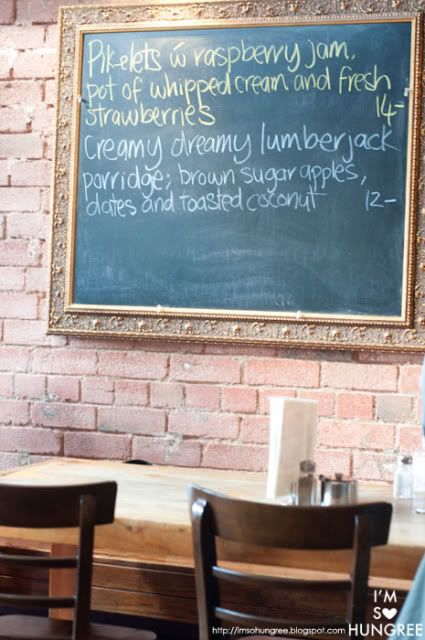 Pik-elets w raspberry jam,
pot of whipped cream and fresh
strawberries 14-
Creamy dreamy lumberjack
porridge; brown sugar apples,
dates and toasted coconut 12-
I'M
S♥
HUNGREE
http://imsohungree.blogspot.com/